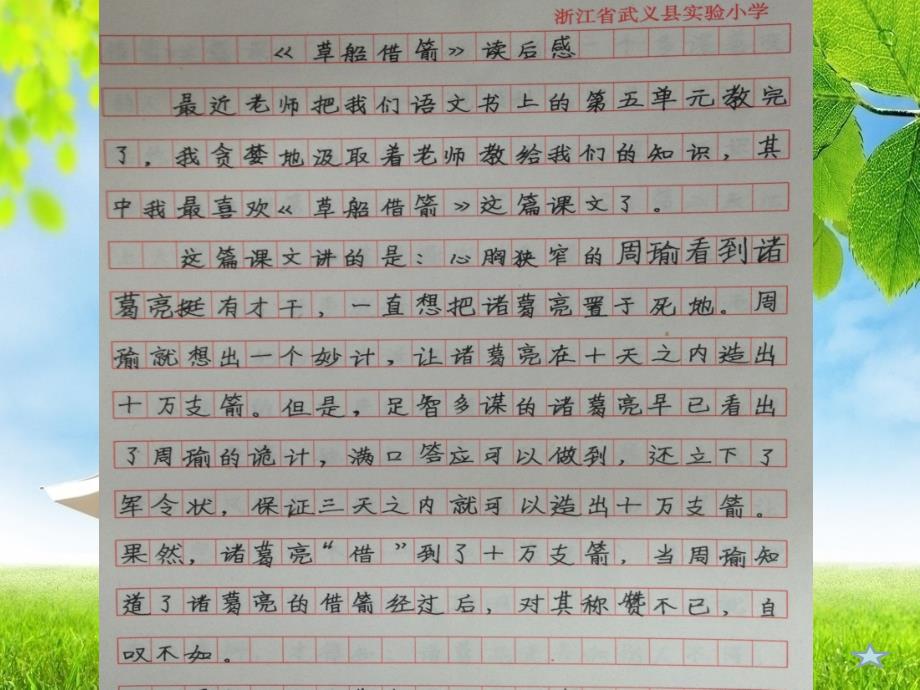 浙江省武义县实验小学
《草船借箭》读后感
最近老师把我们语文书上的第五单元教完
了，我贪婪地汲取着老师教给我们的知识，其
中我最喜欢《草船借箭》这篇课文了。
这篇课文讲的是：心胸狭窄的周瑜看到诸
葛亮挺有才干，一直想把诸葛亮置于死地。周
瑜就想出一个妙计，让诸葛亮在十天之内造出
十万支箭。但是，足智多谋的诸葛亮早已看出
了周瑜的诡计，满口答应可以做到，还立下了
军令状，保证三天之内就可以造出十万支箭。
果然，诸葛亮“借”到了十万支箭，当周瑜知
道了诸葛亮的借箭经过后，对其称赞不已，自
叹不如。